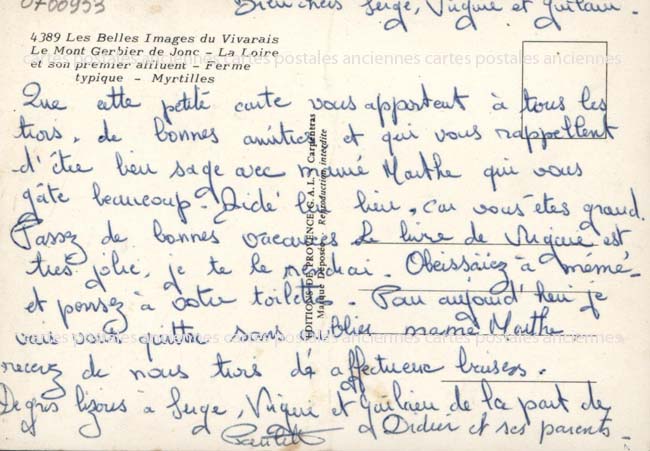 0700953
Bien chers Serge, Virginie et Guilain.
4389 Les Belles Images du Vivarais
Le Mont Gerbier de Jonc - La Loire
et son premier affluent - Ferme
typique - Myrtilles
cartes postales anciennes cartes postales anciennes cartes postales anciennes
Que cette petite carte vous apportent à tous les
trois, de bonnes amitiées et qui vous rappellent
d'être bien sage avec mamé Marthe qui vous
gâte beaucoup. Aidé bien, car vous êtes grand.
Passez de bonnes vacances. Le livre de Virginie est
très jolie, je te le Obeissaiez à mémé
et pensez a votre toilette. Pour aujourd'hui je
vais vous quitter sans oublier mamé Marthe
cartes postales anciennes cartes postales anciennes cartes postales anciennes
recevez de nous trois de affectueux baisers.
De gros bisous à Serge, Virginie et Guilain de la part de
Didier et ses parents
EDITIONS DE PROVENCE, G.A.L., Carpentras
Marque Déposée - Reproduction interdite